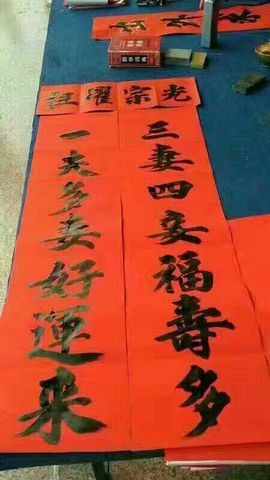 光宗耀祖
三妻四妾福壽多
一夫多妾好運来